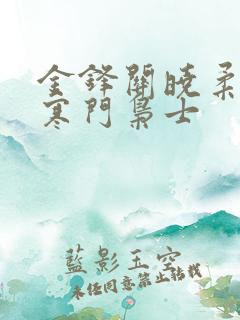 金鋒關曉柔
寒門梟士
藍影玉空
未經同意禁止轉載